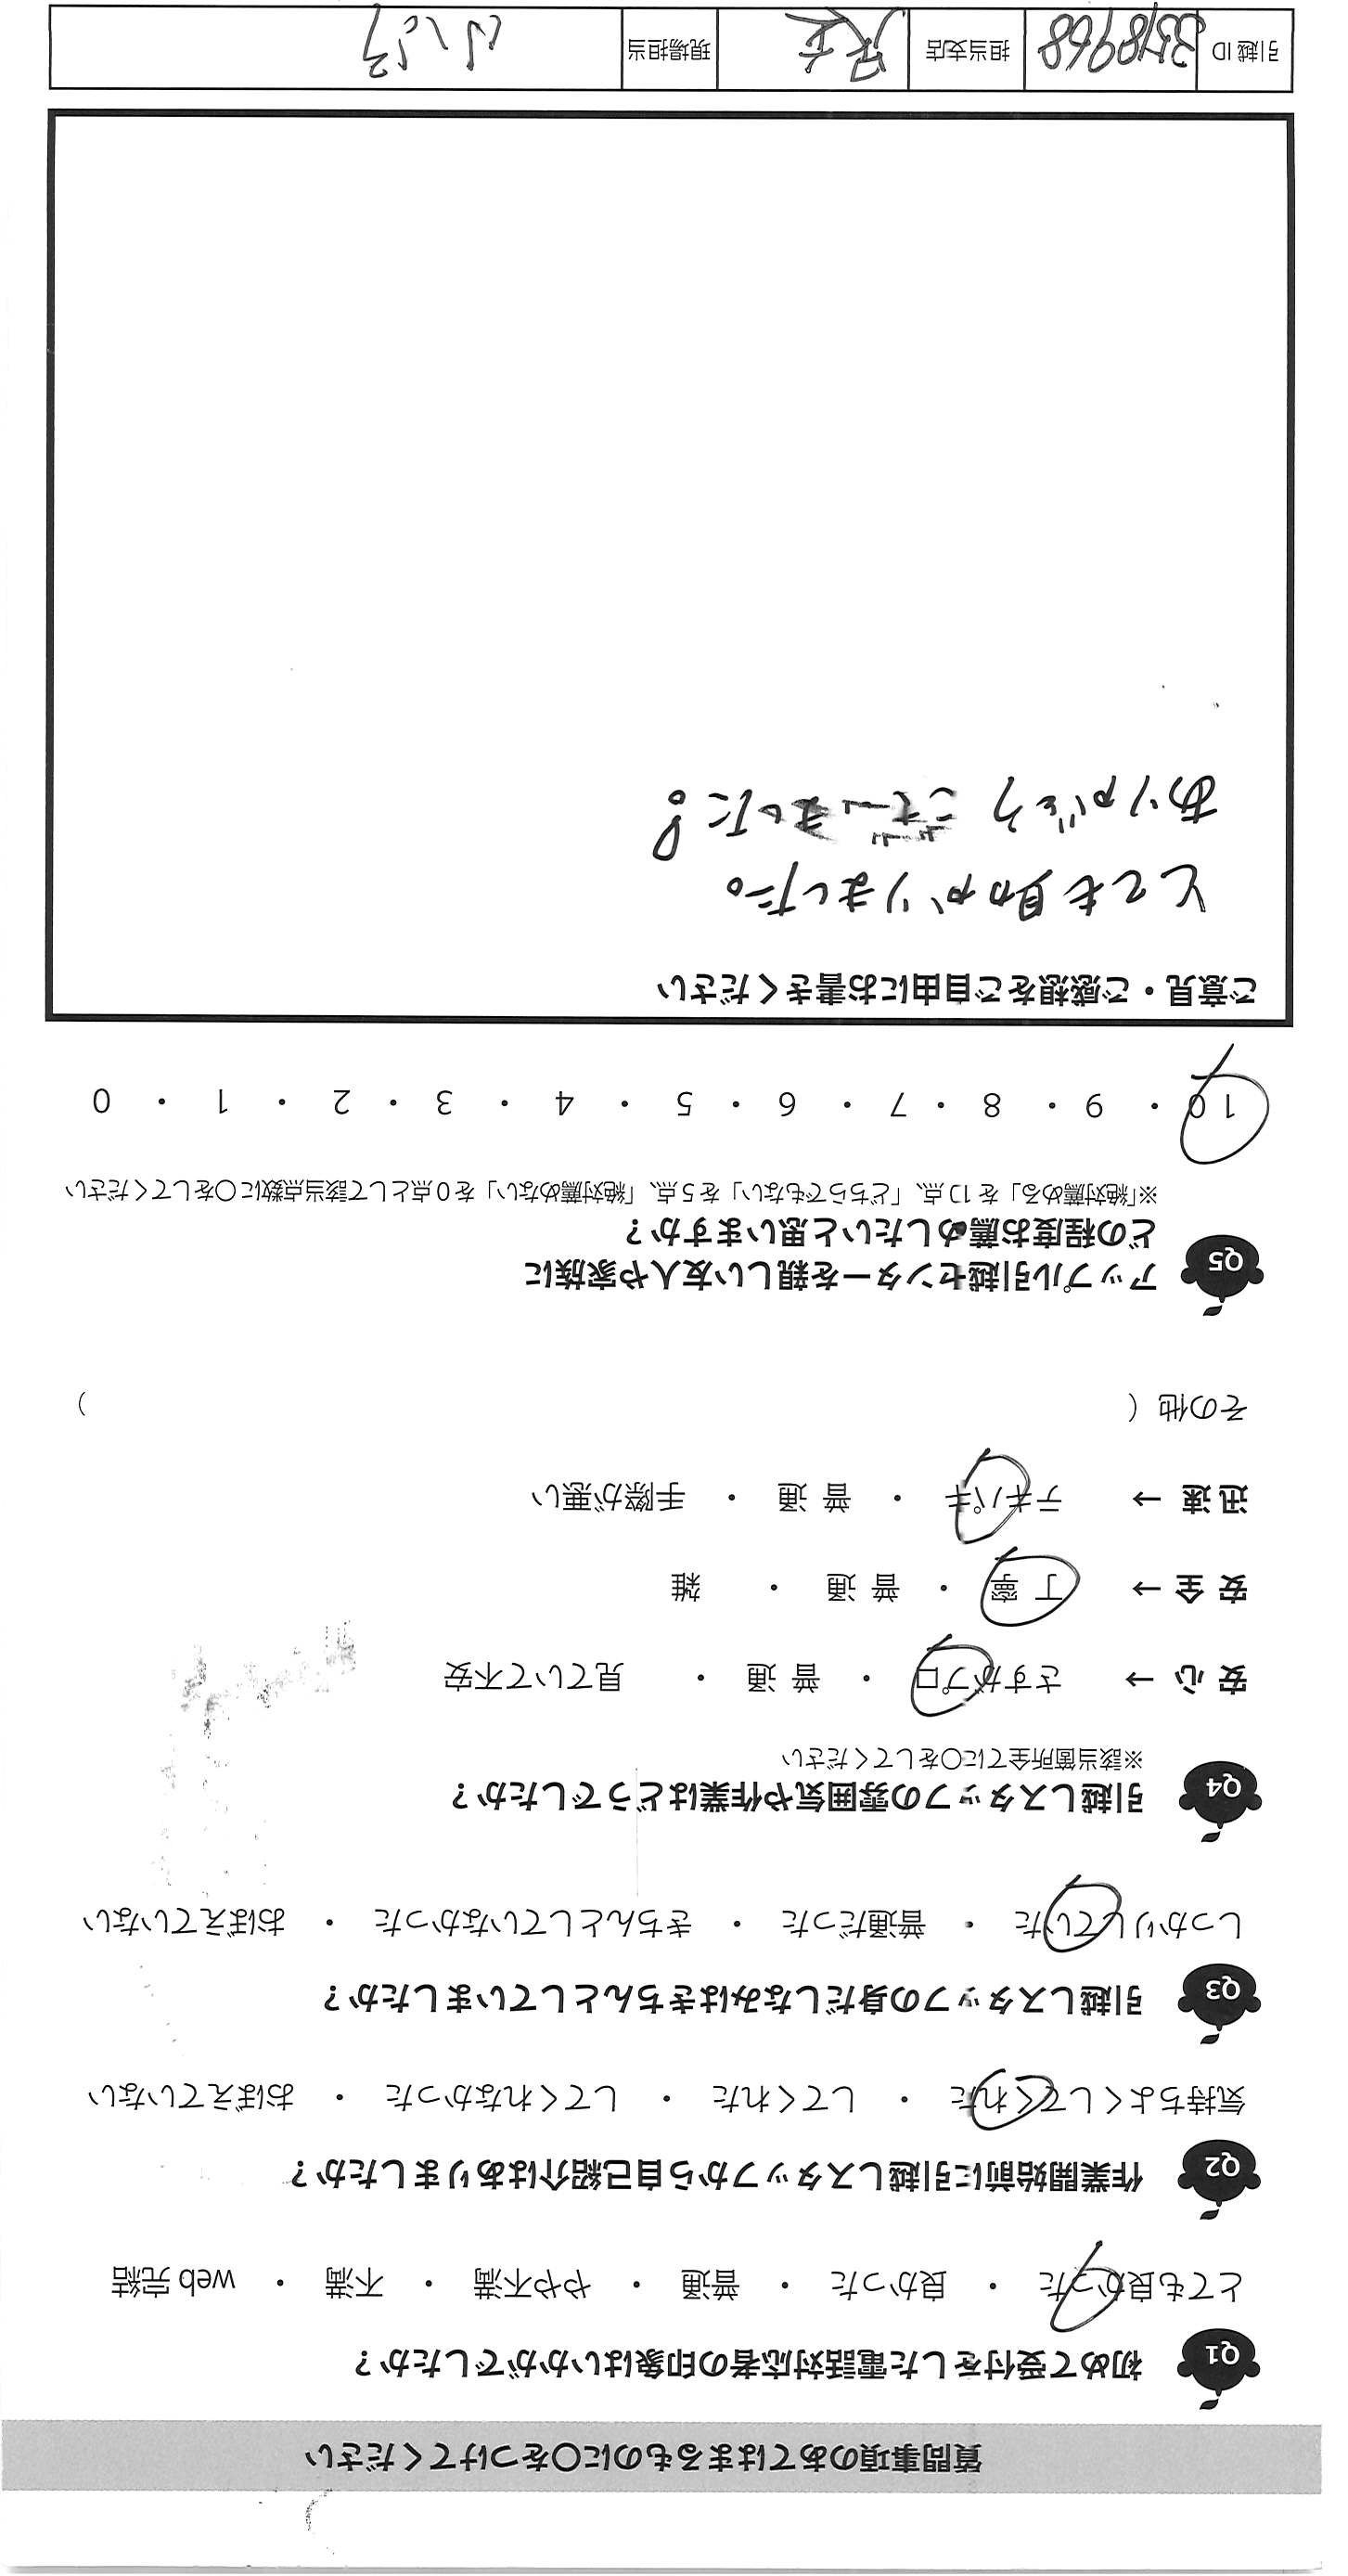 質問事項のあてはまるものに〇をつけてください
Q1 初めて受付をした電話対応者の印象はいかがでしたか？
とても良かった ・ 良かった ・ 普通 ・ やや不満 ・ 不満 ・ web 完結
Q2 作業開始前に引越しスタッフから自己紹介はありましたか？
気持ちよくしてくれた ・ してくれた ・ してくれなかった ・ おぼえていない
Q3 引越しスタッフの身だしなみはきちんとしていましたか？
しっかりしていた ・ 普通だった ・ きちんとしていなかった ・ おぼえていない
Q4 引越しスタッフの雰囲気や作業はどうでしたか？
※該当箇所全てに〇をしてください
安 心 → さすがプロ ・ 普 通 ・ 見ていて不安
安 全 → 丁 寧 ・ 普 通 ・ 雑
迅 速 → テキパキ ・ 普 通 ・ 手際が悪い
その他 （ ）
Q5 アップル引越センターを親しい友人や家族に
どの程度お薦めしたいと思いますか？
※「絶対薦める」を10点、「どちらでもない」を5点、「絶対薦めない」を0点として該当点数に〇をしてください
10 ・ 9 ・ 8 ・ 7 ・ 6 ・ 5 ・ 4 ・ 3 ・ 2 ・ 1 ・ 0
ご意見・ご感想をご自由にお書きください
とても助かりました。
ありがとうございました！
引越 ID 担当支店 現場担当